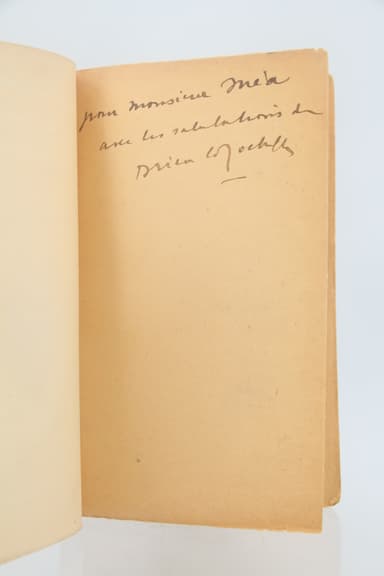 pour Monsieur Méa
avec les salutations de
Drieu la Rochelle